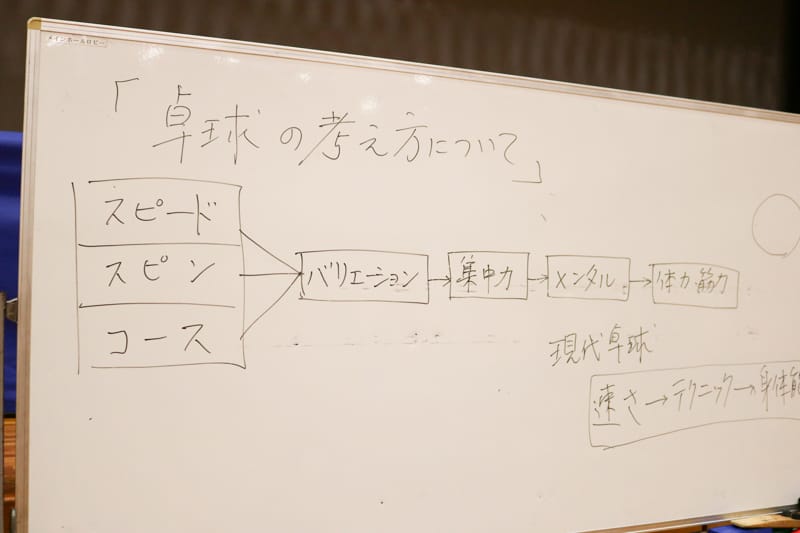 メインホールロビー
「卓球の考え方について」
スピード
スピン
コース
バリエーション → 集中力 → メンタル → 体力・筋力
現代卓球
速さ→テクニック→身体能